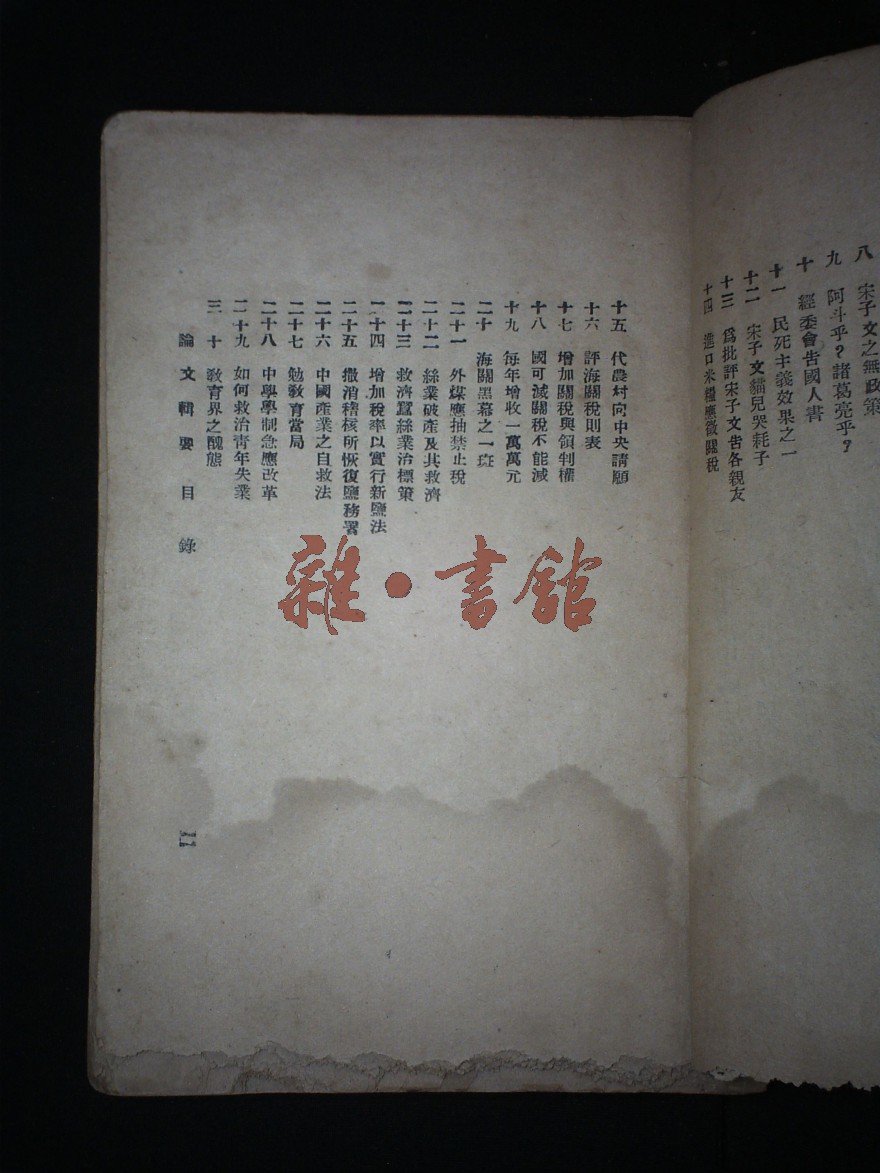 八 宋子文之無政策
九 阿斗乎?諸葛亮乎?
十 經委會告國人書
十一 民死主義效果之一
十二 宋子文貓兒哭耗子
十三 爲批評宋子文告各親友
十四 進口米糧應徵關稅
十五 代農村向中央請願
十六 評海關稅則表
十七 增加關稅與領判權
十八 國可滅關稅不能減
十九 每年增收一萬萬元
二十 海關黑幕之一斑
二十一 外煤應抽禁止稅
二十二 絲業破產及其救濟
二十三 救濟蠶絲業治標策
二十四 增加稅率以實行新鹽法
二十五 撤消稽核所恢復鹽務署
二十六 中國產業之自救法
二十七 勉敎育當局
二十八 中學學制急應改革
二十九 如何救治靑年失業
三十 敎育界之醜態
論文輯要 目錄
二
雜·書館